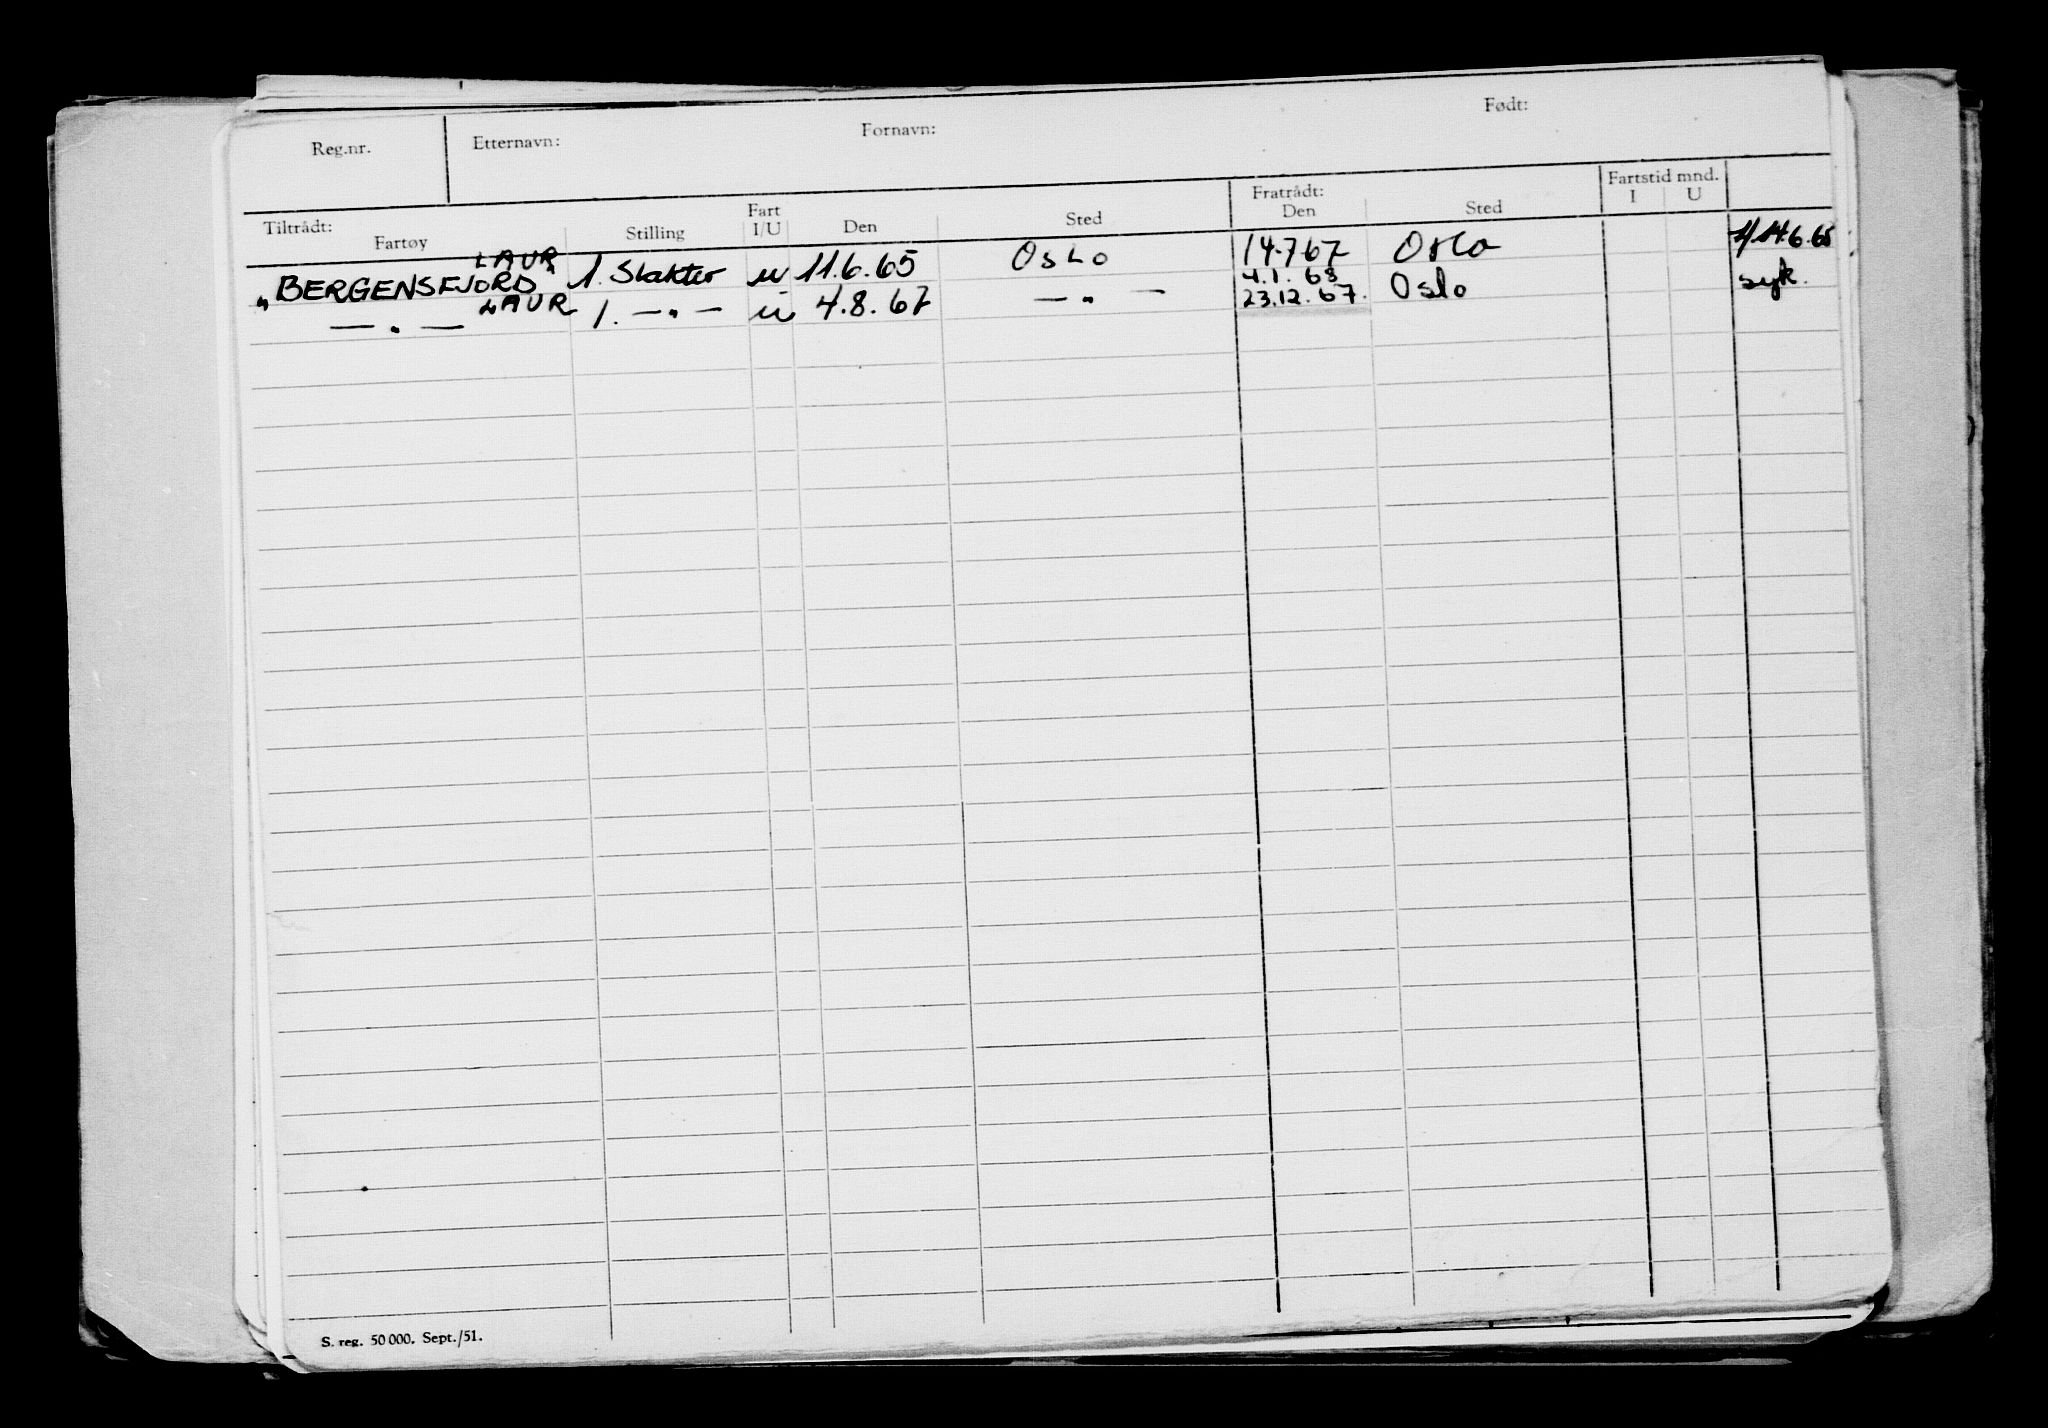 Reg.nr. Etternavn: Fornavn: Født:
Tiltrådt: Fratrådt: Fartstid mnd.
Fartøy Stilling Fart I/U Den Sted Den Sted I U
LAUR
"BERGENSFJORD" 1. Slakter u 11.6.65 OSLO 14.7.67 Oslo 14.6.65
LAUR 4.1.68
— " — 1. — " — u 4.8.67 — " — 23.12.67. Oslo syk.
S. reg. 50 000. Sept./51.